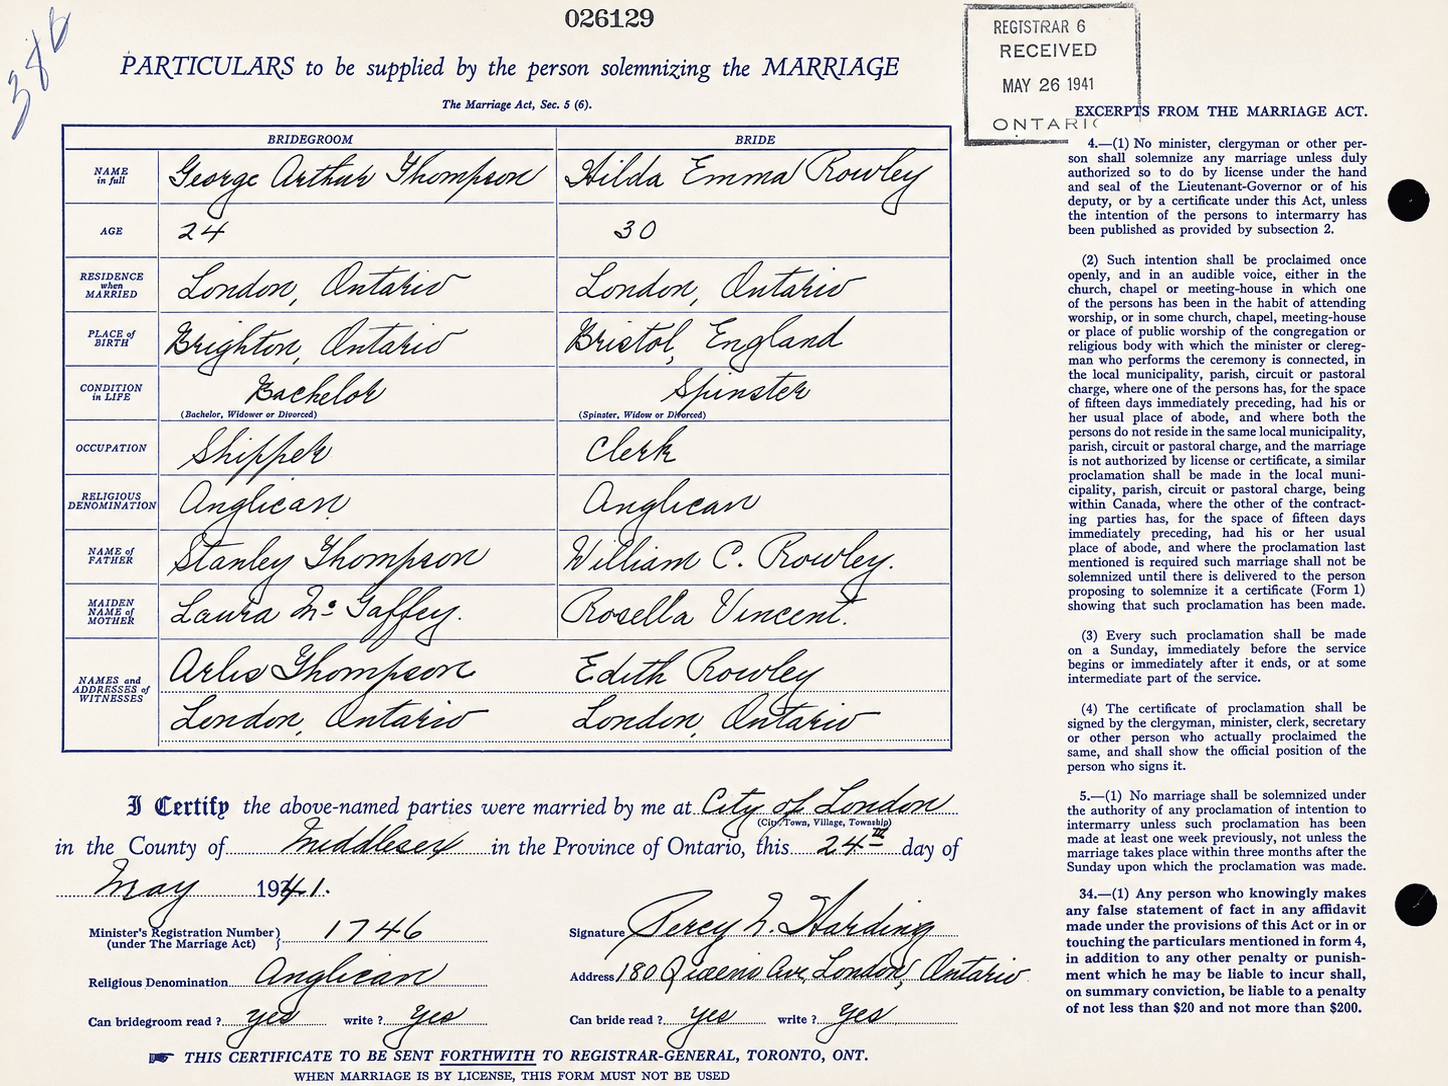 386
026129
REGISTRAR 6
RECEIVED
MAY 26 1941
ONTARIO
PARTICULARS to be supplied by the person solemnizing the MARRIAGE
The Marriage Act, Sec. 5 (6).
BRIDEGROOM BRIDE
NAME in full George Arthur Thompson Hilda Emma Rowley
AGE 24 30
RESIDENCE when MARRIED London, Ontario London, Ontario
PLACE of BIRTH Brighton, Ontario Bristol, England
CONDITION in LIFE Bachelor Spinster
(Bachelor, Widower or Divorced) (Spinster, Widow or Divorced)
OCCUPATION Shipper Clerk
RELIGIOUS DENOMINATION Anglican Anglican
NAME of FATHER Stanley Thompson William C. Rowley.
MAIDEN NAME of MOTHER Laura Mc Gaffey. Rosella Vincent.
NAMES and ADDRESSES of WITNESSES Arlis Thompson Edith Rowley
London, Ontario London, Ontario
I Certify the above-named parties were married by me at City of London
(City, Town, Village, Township)
in the County of Middlesex in the Province of Ontario, this 24th day of
May 1941.
Minister's Registration Number (under The Marriage Act) 1746 Signature Percy N. Harding
Religious Denomination Anglican Address 180 Queens Ave, London, Ontario
Can bridegroom read ? yes write ? yes Can bride read ? yes write ? yes
THIS CERTIFICATE TO BE SENT FORTHWITH TO REGISTRAR-GENERAL, TORONTO, ONT.
WHEN MARRIAGE IS BY LICENSE, THIS FORM MUST NOT BE USED
EXCERPTS FROM THE MARRIAGE ACT.
4.—(1) No minister, clergyman or other per-
son shall solemnize any marriage unless duly
authorized so to do by license under the hand
and seal of the Lieutenant-Governor or of his
deputy, or by a certificate under this Act, unless
the intention of the persons to intermarry has
been published as provided by subsection 2.
(2) Such intention shall be proclaimed once
openly, and in an audible voice, either in the
church, chapel or meeting-house in which one
of the persons has been in the habit of attending
worship, or in some church, chapel, meeting-house
or place of public worship of the congregation or
religious body with which the minister or clereg-
man who performs the ceremony is connected, in
the local municipality, parish, circuit or pastoral
charge, where one of the persons has, for the space
of fifteen days immediately preceding, had his or
her usual place of abode, and where both the
persons do not reside in the same local municipality,
parish, circuit or pastoral charge, and the marriage
is not authorized by license or certificate, a similar
proclamation shall be made in the local muni-
cipality, parish, circuit or pastoral charge, being
within Canada, where the other of the contract-
ing parties has, for the space of fifteen days
immediately preceding, had his or her usual
place of abode, and where the proclamation last
mentioned is required such marriage shall not be
solemnized until there is delivered to the person
proposing to solemnize it a certificate (Form 1)
showing that such proclamation has been made.
(3) Every such proclamation shall be made
on a Sunday, immediately before the service
begins or immediately after it ends, or at some
intermediate part of the service.
(4) The certificate of proclamation shall be
signed by the clergyman, minister, clerk, secretary
or other person who actually proclaimed the
same, and shall show the official position of the
person who signs it.
5.—(1) No marriage shall be solemnized under
the authority of any proclamation of intention to
intermarry unless such proclamation has been
made at least one week previously, not unless the
marriage takes place within three months after the
Sunday upon which the proclamation was made.
34.—(1) Any person who knowingly makes
any false statement of fact in any affidavit
made under the provisions of this Act or in or
touching the particulars mentioned in form 4,
in addition to any other penalty or punish-
ment which he may be liable to incur shall,
on summary conviction, be liable to a penalty
of not less than $20 and not more than $200.